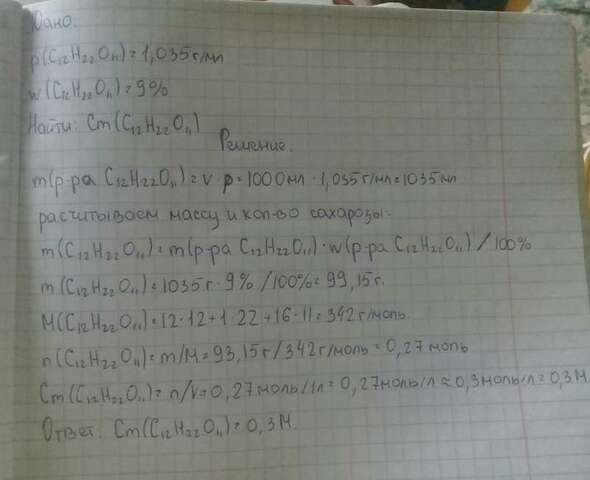 Дано.
ρ(C₁₂H₂₂O₁₁)=1,035г/мл
w(C₁₂H₂₂O₁₁)=9%
Найти: Cm(C₁₂H₂₂O₁₁)
Решение.
m(р-ра C₁₂H₂₂O₁₁)=v·ρ=1000мл·1,035г/мл=1035мл
расчитываем массу и кол-во сахарозы.
m(C₁₂H₂₂O₁₁)=m(р-ра C₁₂H₂₂O₁₁)·w(р-ра C₁₂H₂₂O₁₁)/100%
m(C₁₂H₂₂O₁₁)=1035г·9%/100%=99,15г.
M(C₁₂H₂₂O₁₁)=12·12+1·22+16·11=342г/моль.
n(C₁₂H₂₂O₁₁)=m/M=93,15г/342г/моль=0,27моль
Cm(C₁₂H₂₂O₁₁)=n/v=0,27моль/1л=0,27моль/л≈0,3моль/л=0,3М
Ответ. Cm(C₁₂H₂₂O₁₁)=0,3М.